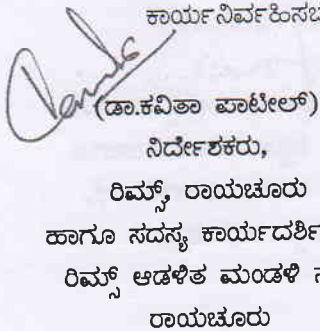 ಕಾರ್ಯನಿರ್ವಹಿಸಬ
(ಡಾ.ಕವಿತಾ ಪಾಟೀಲ್)
ನಿರ್ದೇಶಕರು,
ರಿಮ್ಸ್, ರಾಯಚೂರು
ಹಾಗೂ ಸದಸ್ಯ ಕಾರ್ಯದರ್ಶಿ
ರಿಮ್ಸ್ ಆಡಳಿತ ಮಂಡಳಿ
ರಾಯಚೂರು